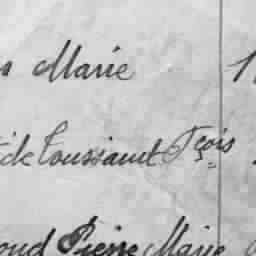 Marie
de Toussaint Fçois
Pierre Marie